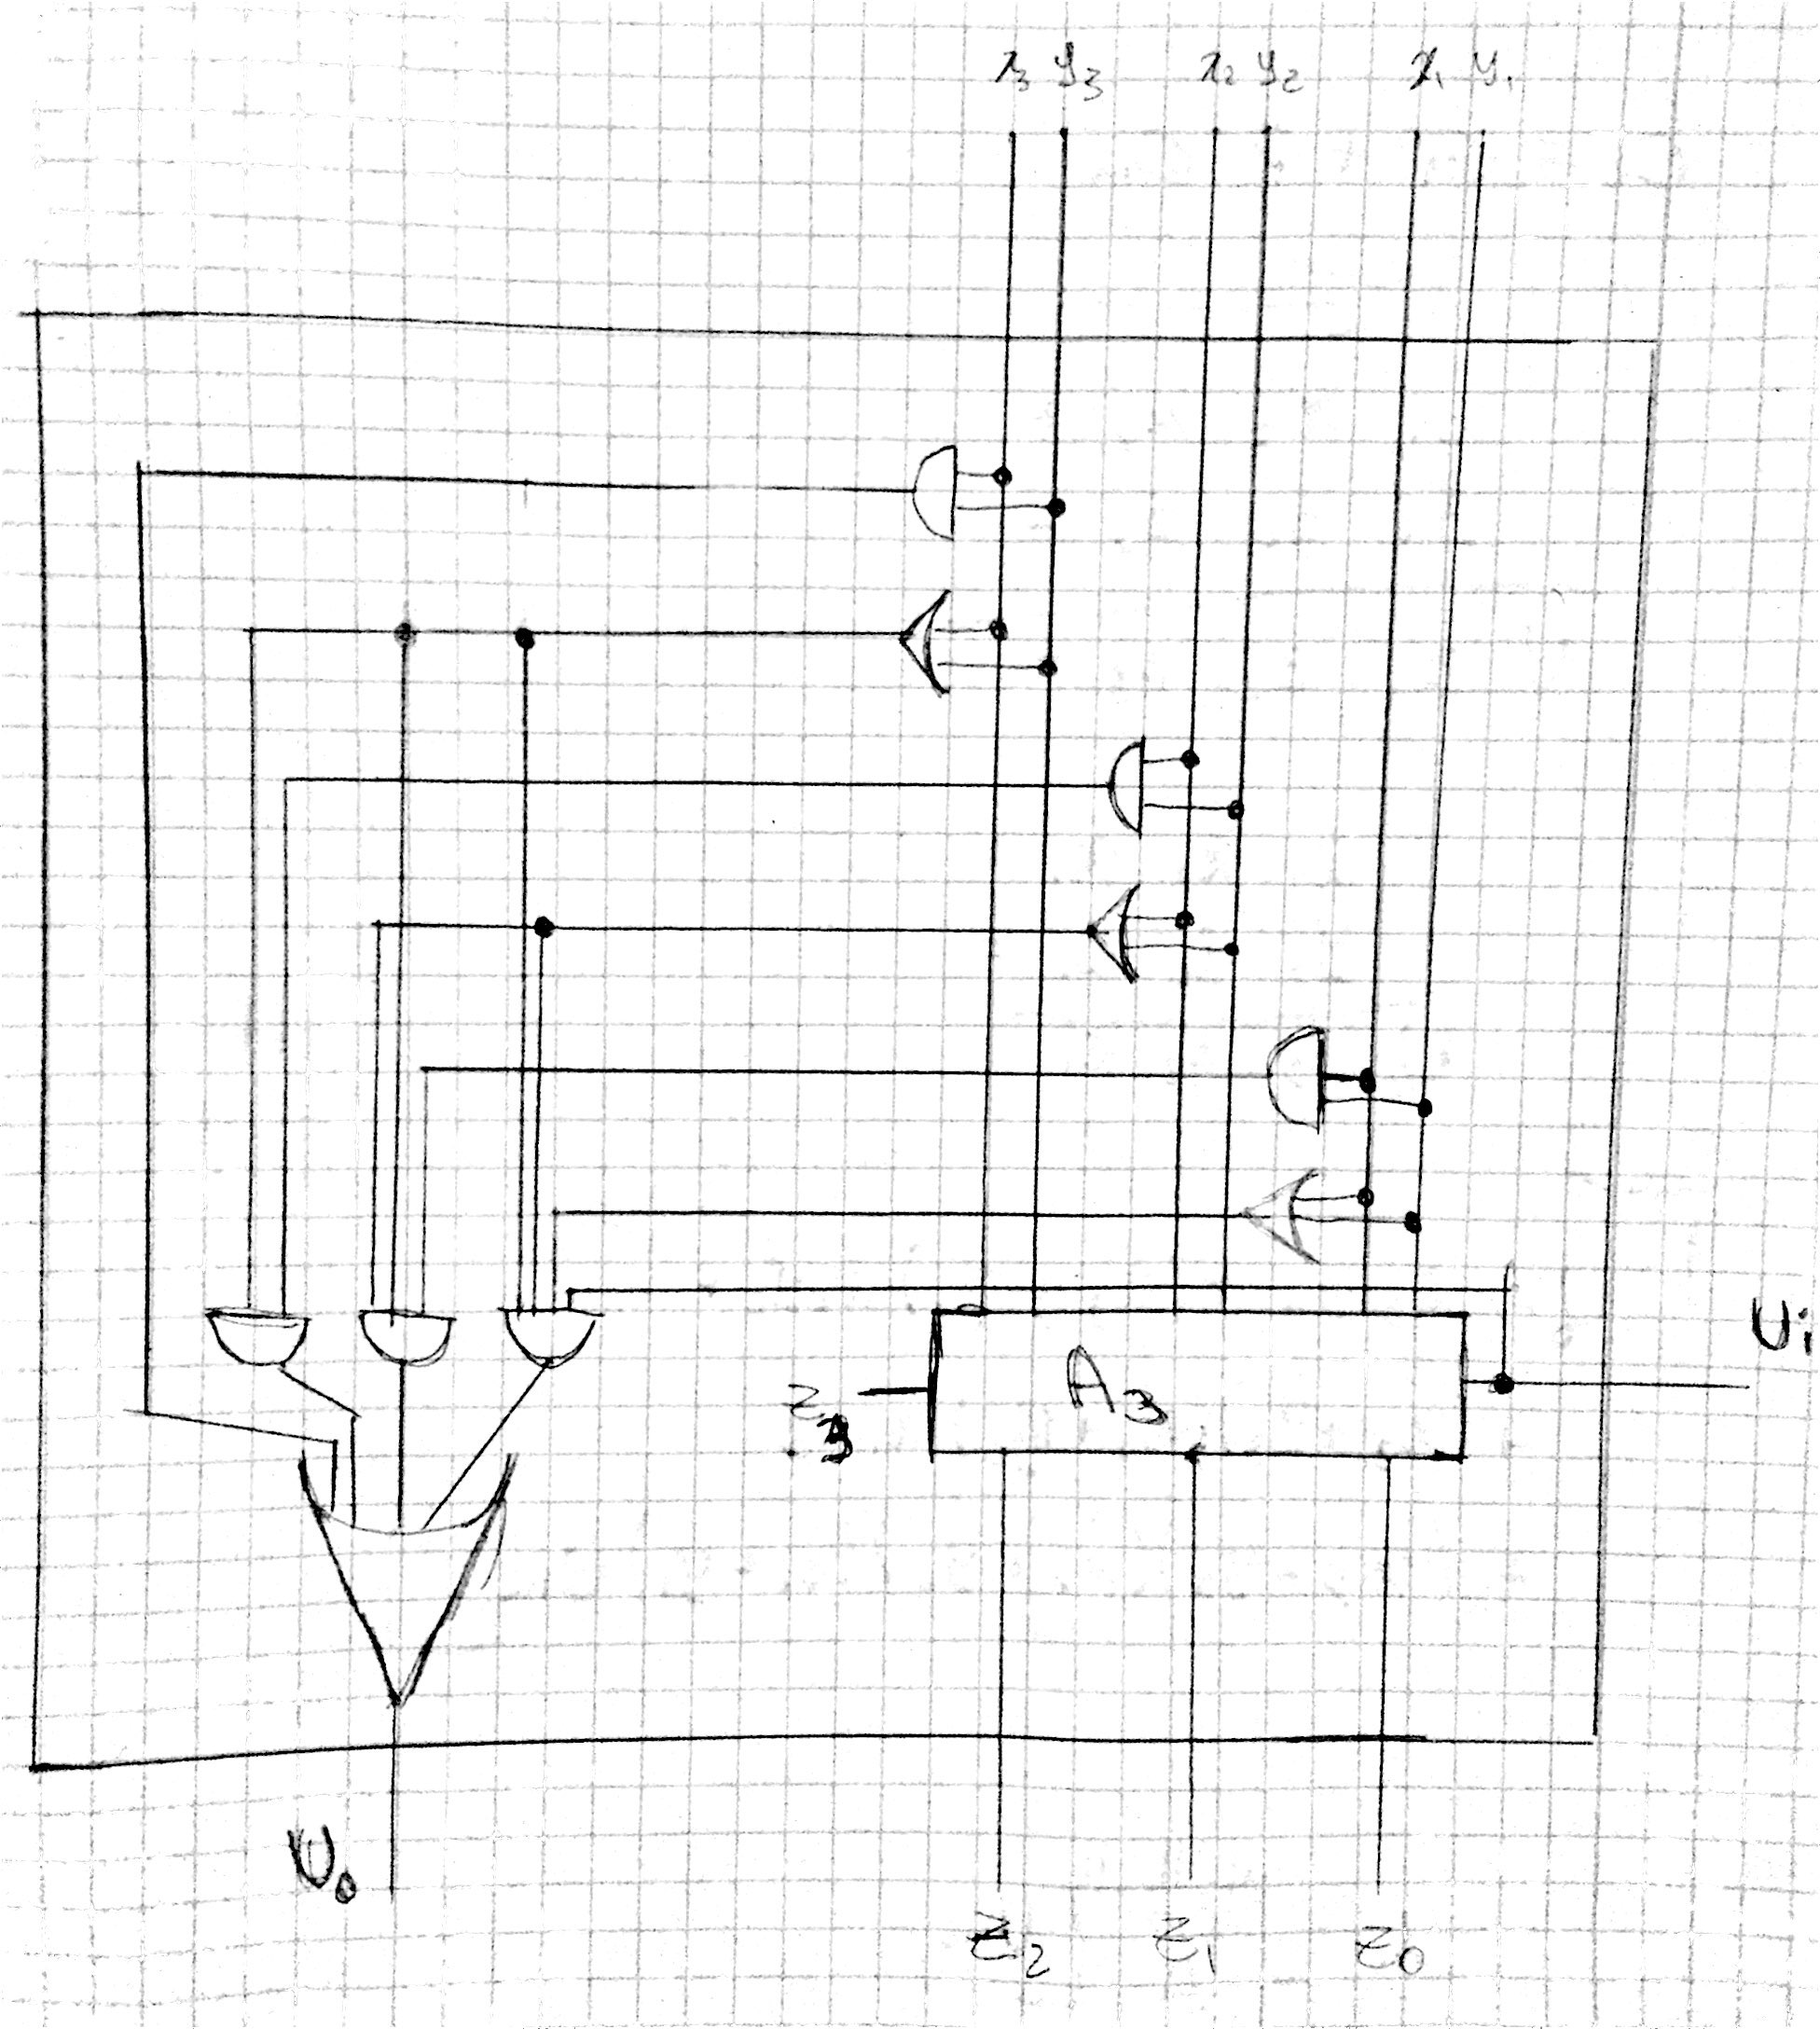 x3 y3 x2 y2 x1 y1
Ui
A3
z3
U0
z2 z1 z0